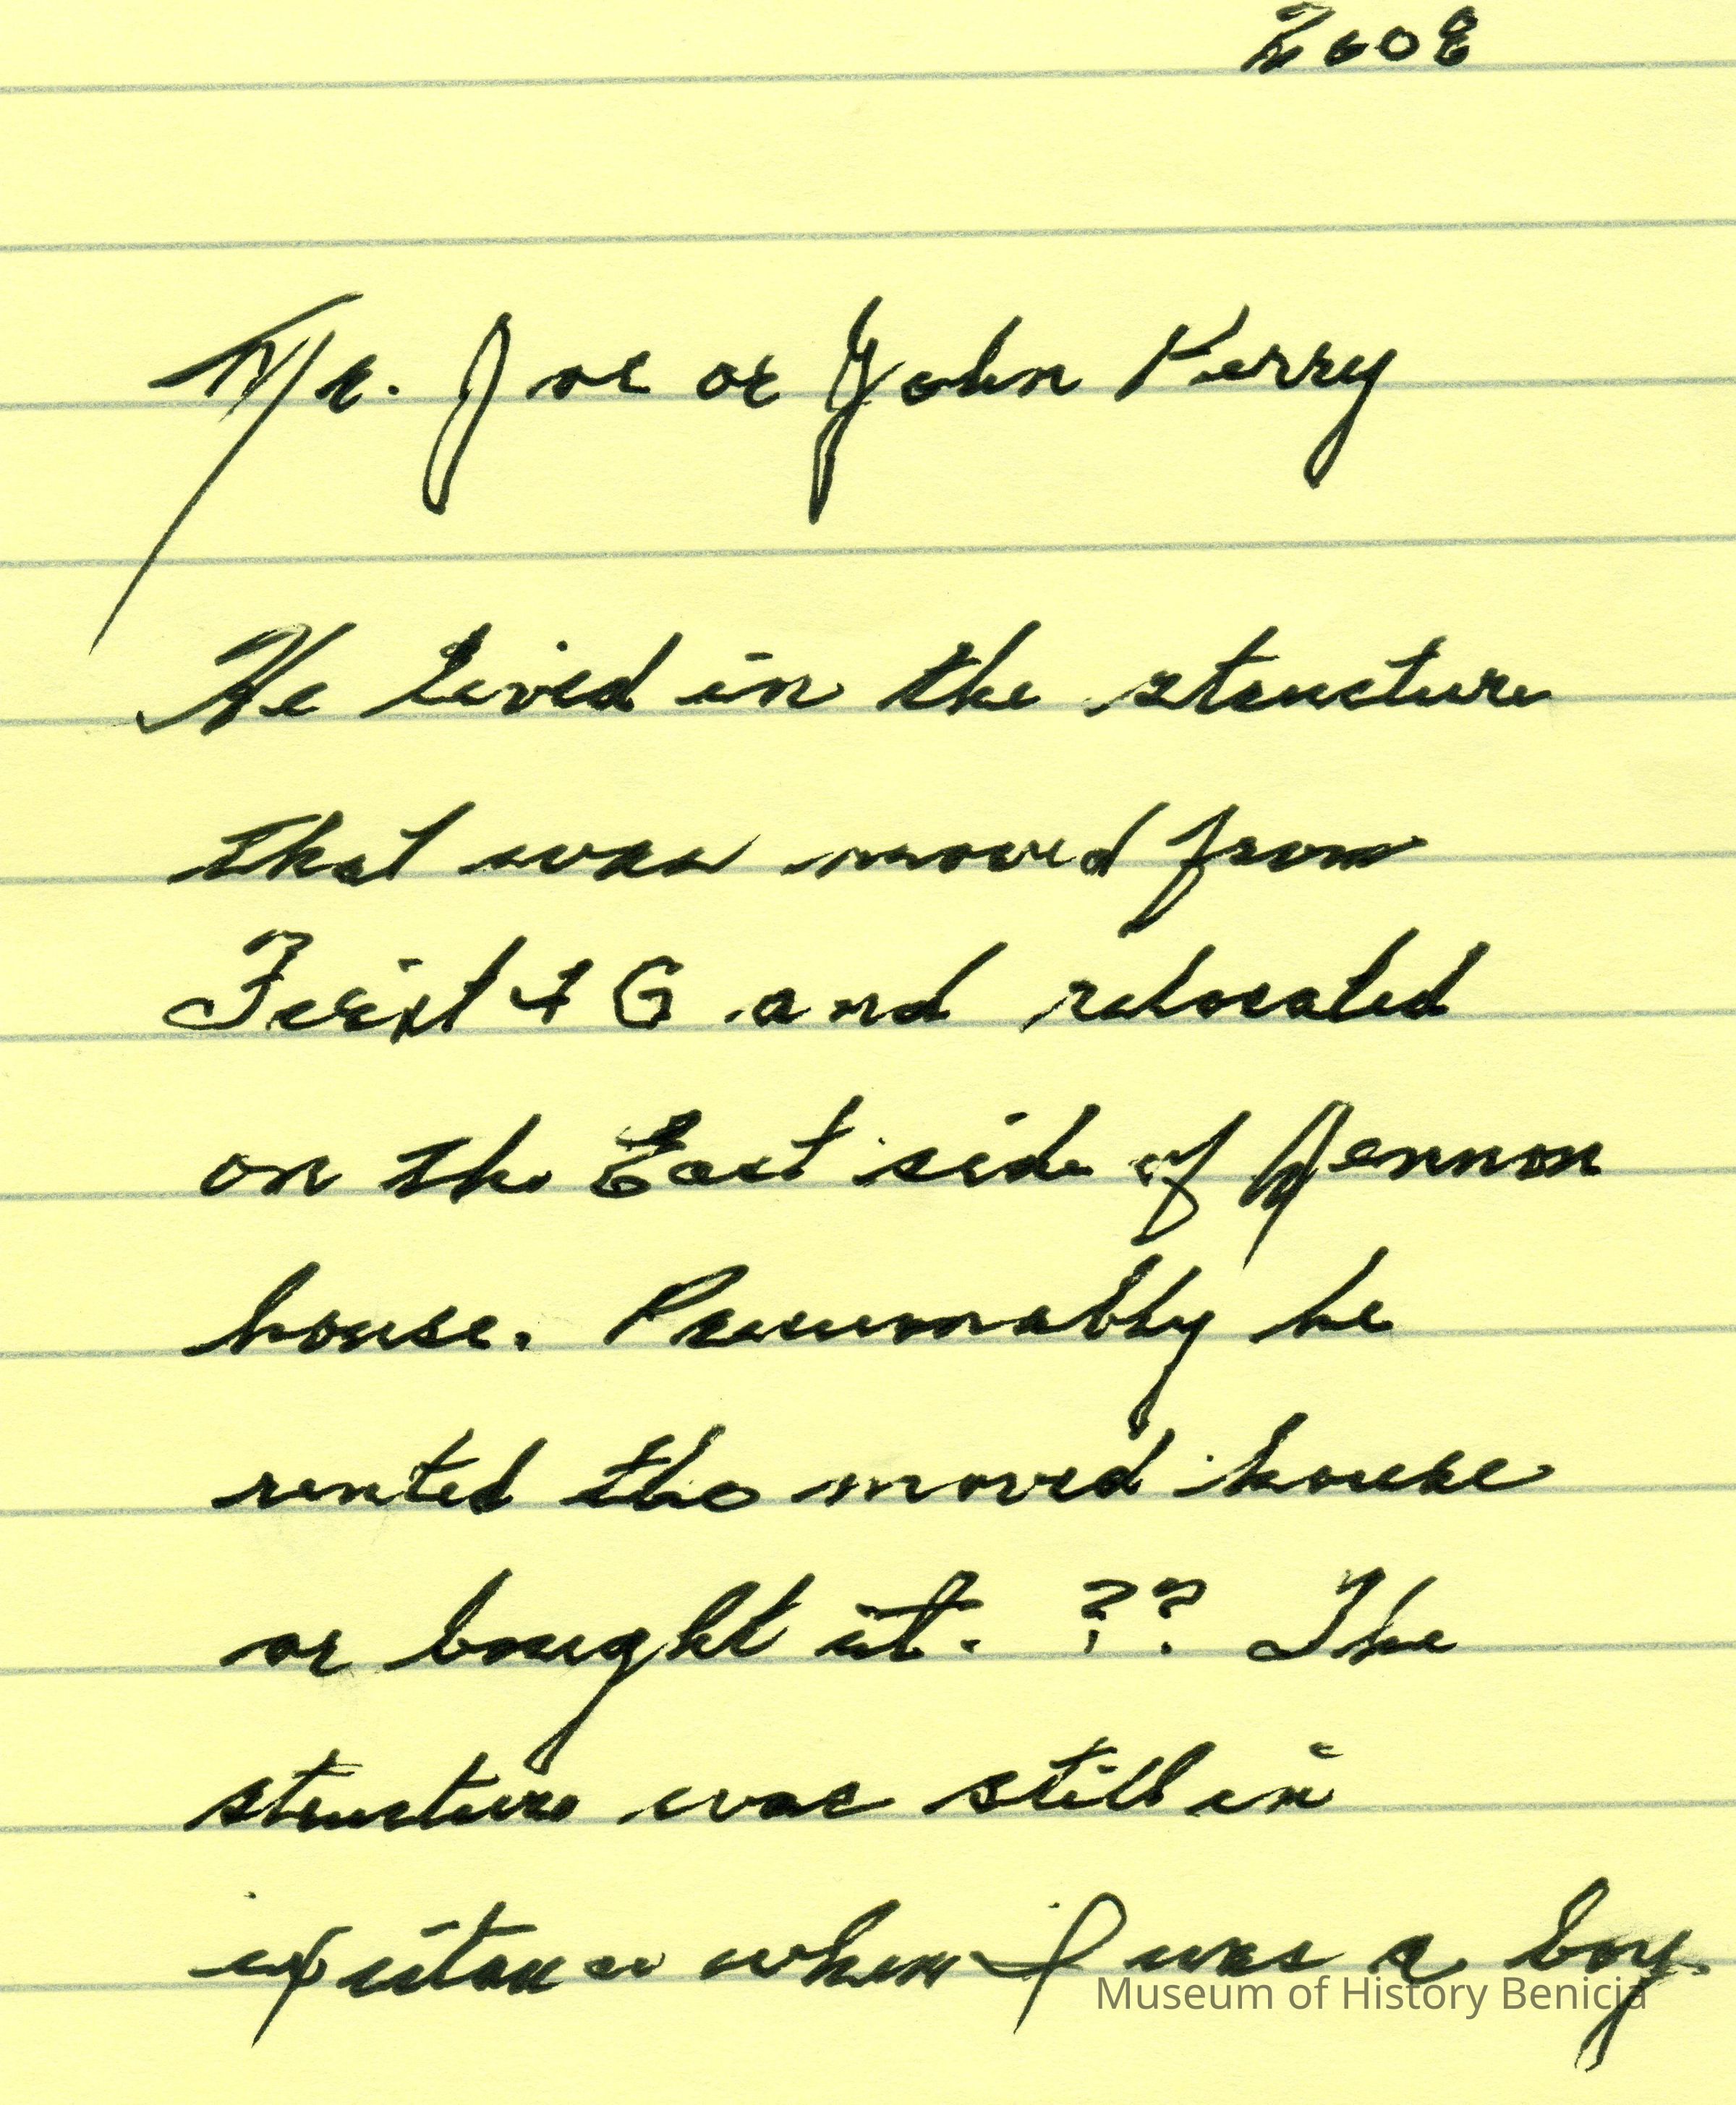 2008
Mr. Joe or John Perry
He lived in the structure
that was moved from
First + G and relocated
on the East side of
house. Presumably he
rented the moved house
or bought it. ?? The
structure was still in
existance when I was a boy.
Museum of History Benicia